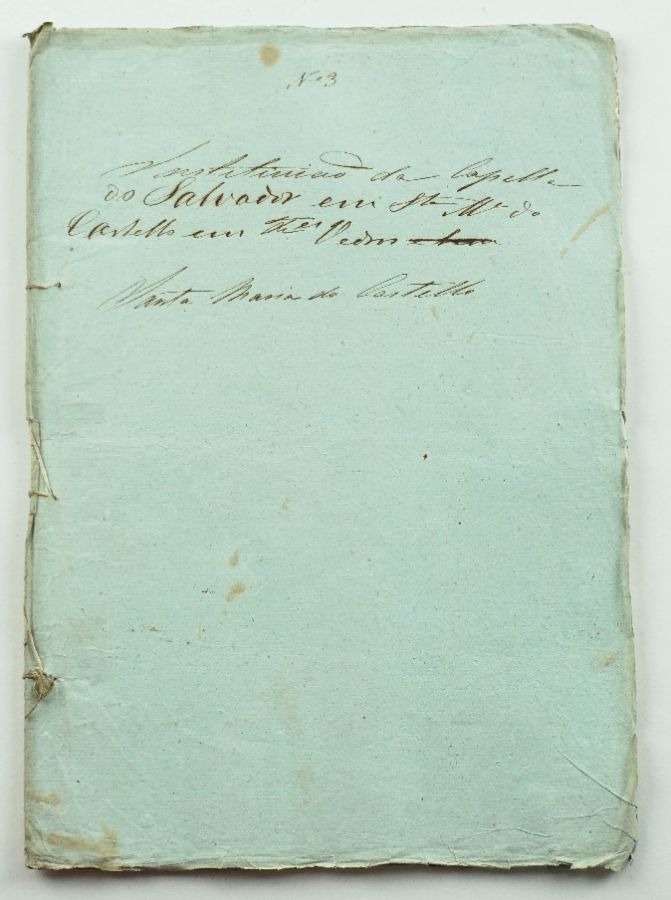 No 3
Instituição da Capella
do Salvador em Sta Ma do
Castello em Tres Vedras
Santa Maria do Castello